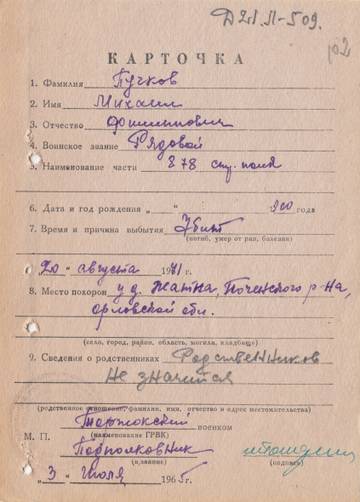 Д21.Л-509.
102
КАРТОЧКА
1. Фамилия Пучков
2. Имя Михаил
3. Отчество Филиппович
4. Воинское звание Рядовой
5. Наименование части 878 стр. полк
6. Дата и год рождения „ “ 900 года
7. Время и причина выбытия Убит
(погиб, умер от ран, болезни)
20 - августа 1941 г.
8. Место похорон у д. Жатна, Почепского р-на,
орловской обл.
(село, город, район, область, могила, кладбище)
9. Сведения о родственниках Родственников
не значится
(родственное отношение, фамилия, имя, отчество и адрес местожительства)
военком
М. П. (наименование ГРВК)
Подполковник
(звание) (подпись)
„3“ Июля 1965 г.